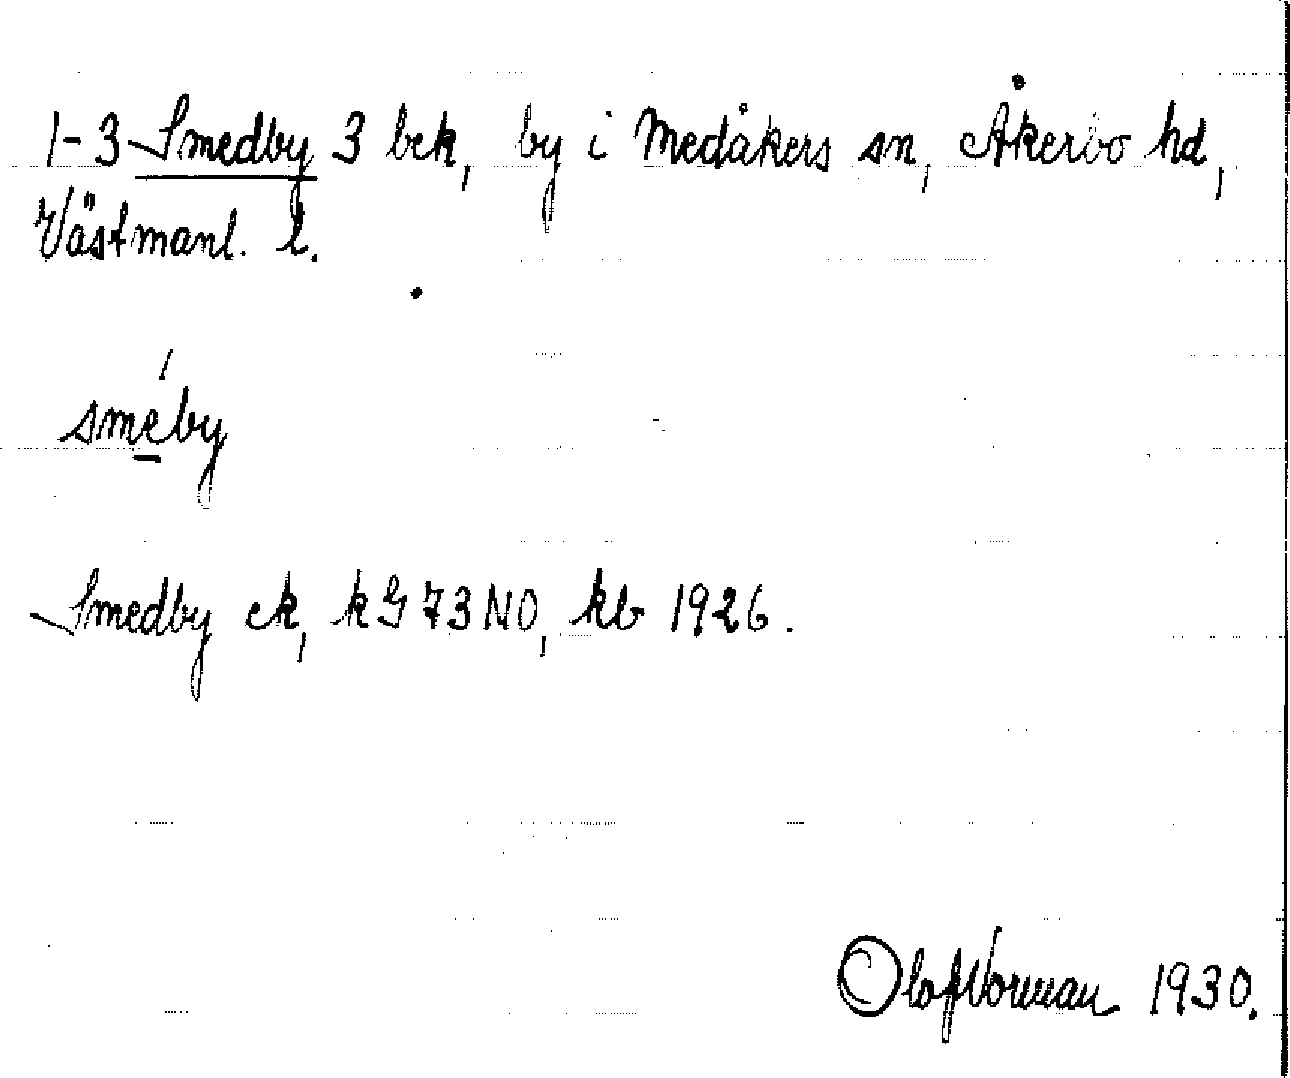 1-3 Smedby 3 bek, by i Medåkers sn, Åkerbo hd,
Västmanl. l.
sméby
Smedby ek, kG 73 NO, kb 1926.
Olof Norman 1930.